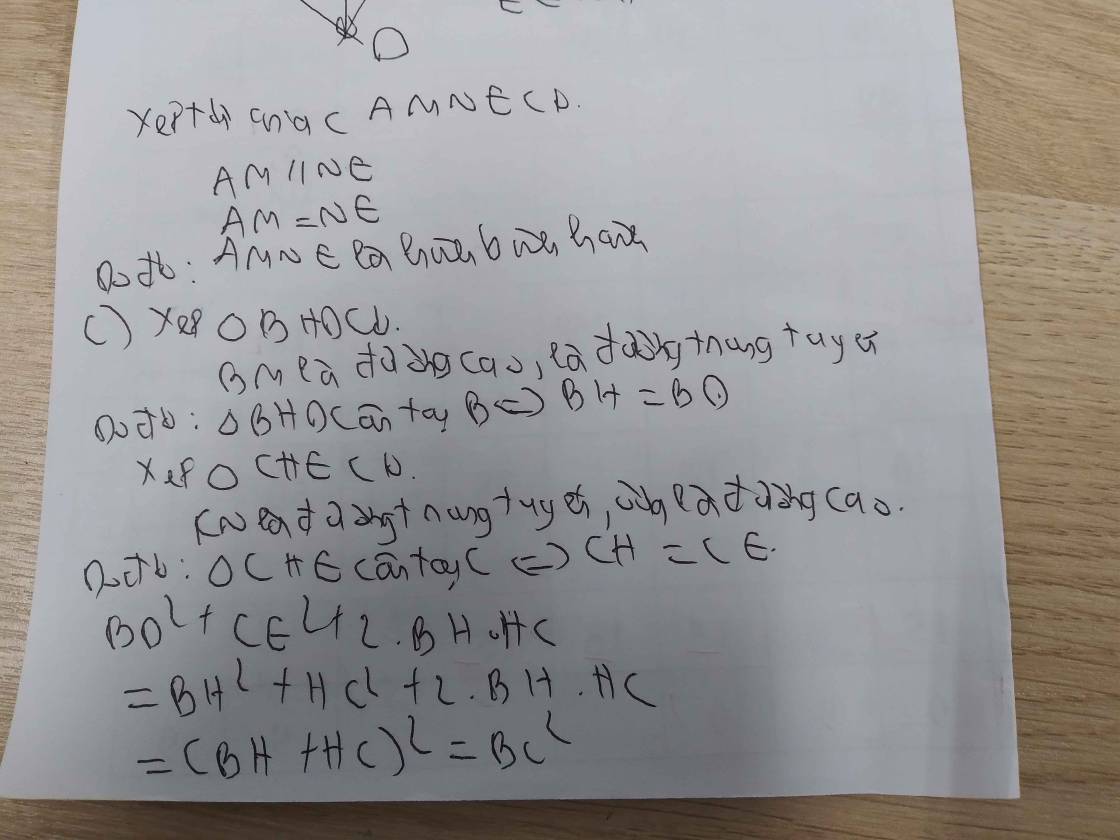 D
Xét tứ giác AMNE có.
AM // NE
AM = NE
Do đó: AMNE là hình bình hành
c) Xét △BHD có.
BM là đường cao, là đường trung tuyến
Do đó: △BHD cân tại B ⇔ BH = BD
Xét △CHE có.
CN là đường trung tuyến, cũng là đường cao.
Do đó: △CHE cân tại C ⇔ CH = CE.
BD² + CE² + 2.BH.HC
= BH² + HC² + 2.BH.HC
= (BH + HC)² = BC²